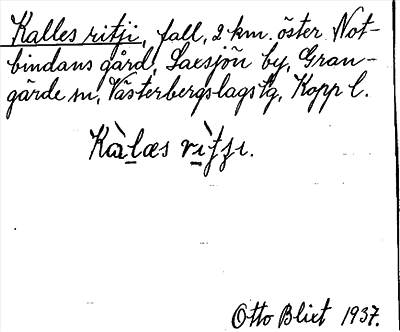 Kalles ritji, fall, 2 km. öster Not-
bindans gård, Laxsjön by, Gran-
gärde sn, Västerbergslags tg, Kopp l.
Kàlæs rìtʃɩ.
Otto Blixt 1937.